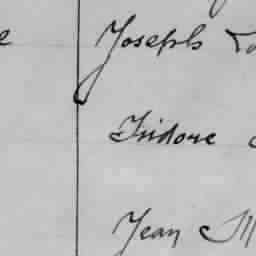 e Joseph
Isidore
Jean M